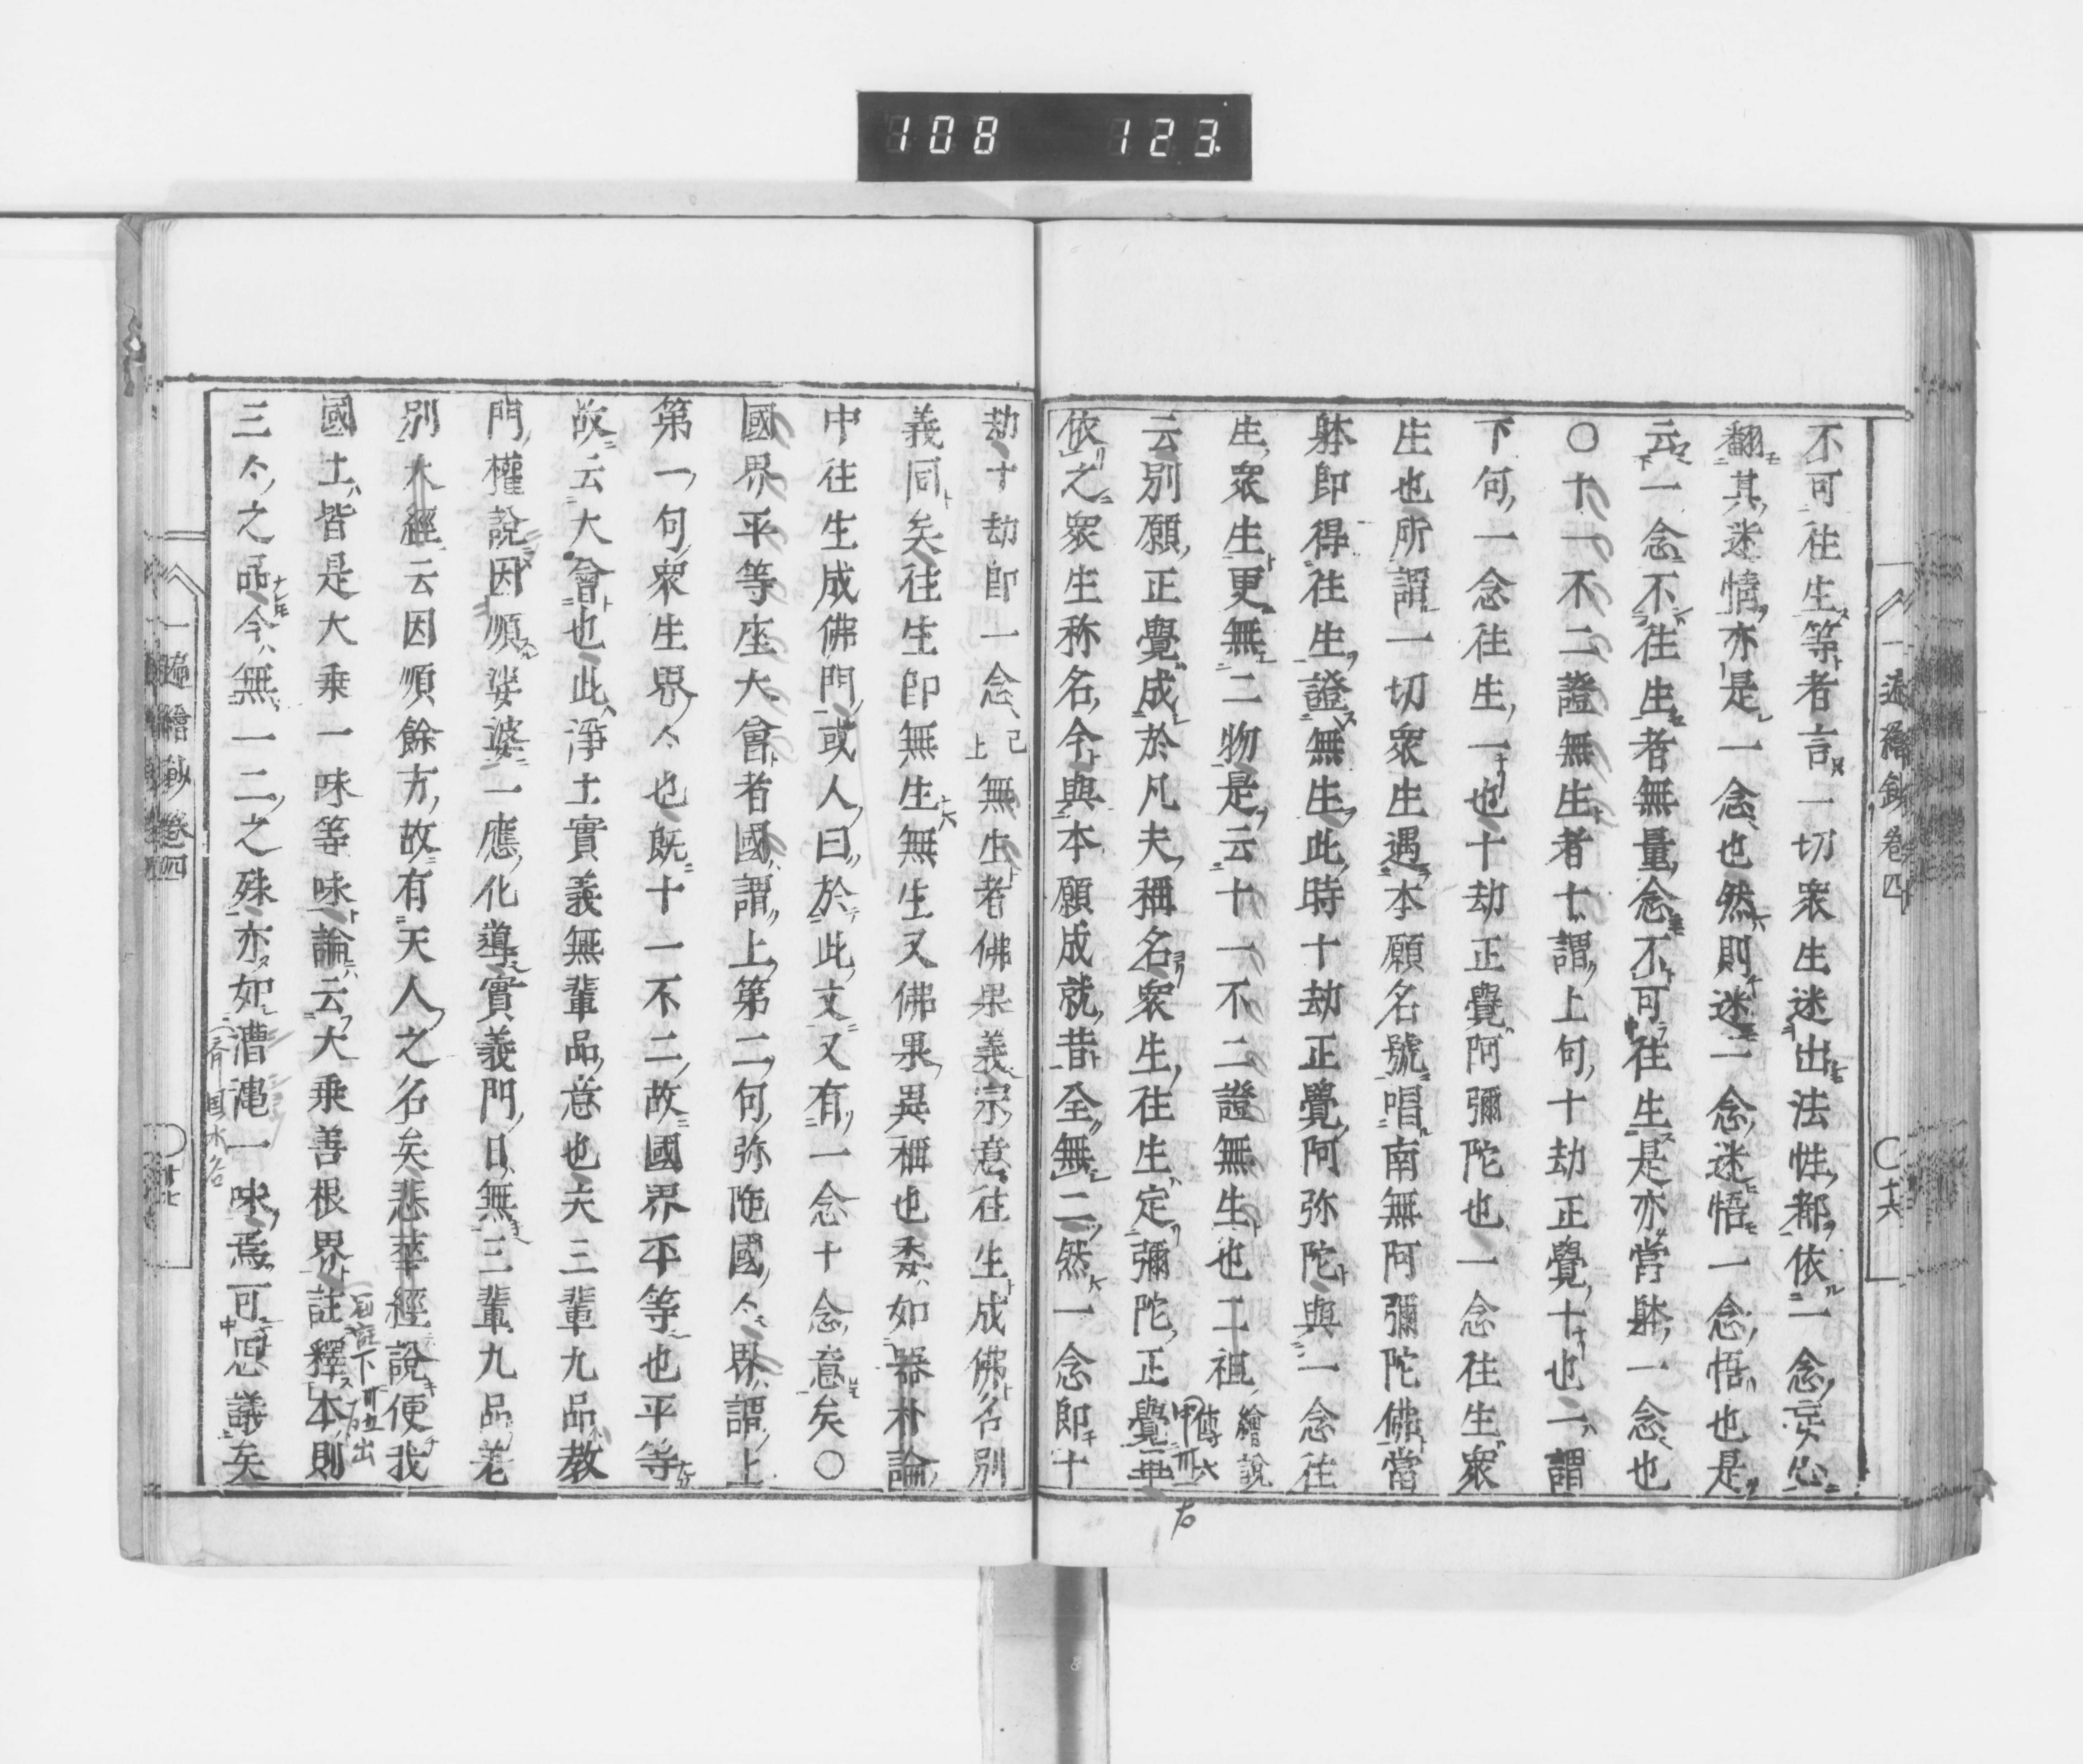 108 123.
一遍繪鈔 卷四
十六
不可往生等者言一切衆生迷出法性都依一念妄心
翻其迷情亦是一念也然則迷一念迷悟一念悟也是
云一念不往生者無量念不可往生是亦當躰一念也
○十一不二證無生者十謂上句十劫正覺十也一謂
下句一念往生一也十劫正覺阿彌陀也一念往生衆
生也所謂一切衆生遇本願名號唱南無阿彌陀佛當
躰即得往生證無生此時十劫正覺阿弥陀與一念往
生衆生更無二物是云十一不二證無生也二祖繪說
云別願正覺成於凡夫稱名衆生往生定彌陀正覺
依之衆生称名今與本願成就昔全無二然一念即十
劫十劫即一念 已上 無生者佛果義宗意往生成佛名別
義同矣往生即無生無生又佛果異稱也委如器朴論
中往生成佛門或人曰於此文又有一念十念意矣○
國界平等座大會者國謂上第二句弥陁國今界謂上
第一句衆生界今也既十一不二故國界平等也平等
故云大會也此淨土實義無輩品意也夫三輩九品教
門權說因順娑婆一應化導實義門日無三輩九品差
別大經云因順餘方故有天人之名矣悲華經說便我
國土皆是大乗一味等味論云大乗善根界註釋本則
三今之品今無一二之殊亦如澠一味焉可思議矣
一遍繪鈔 卷四